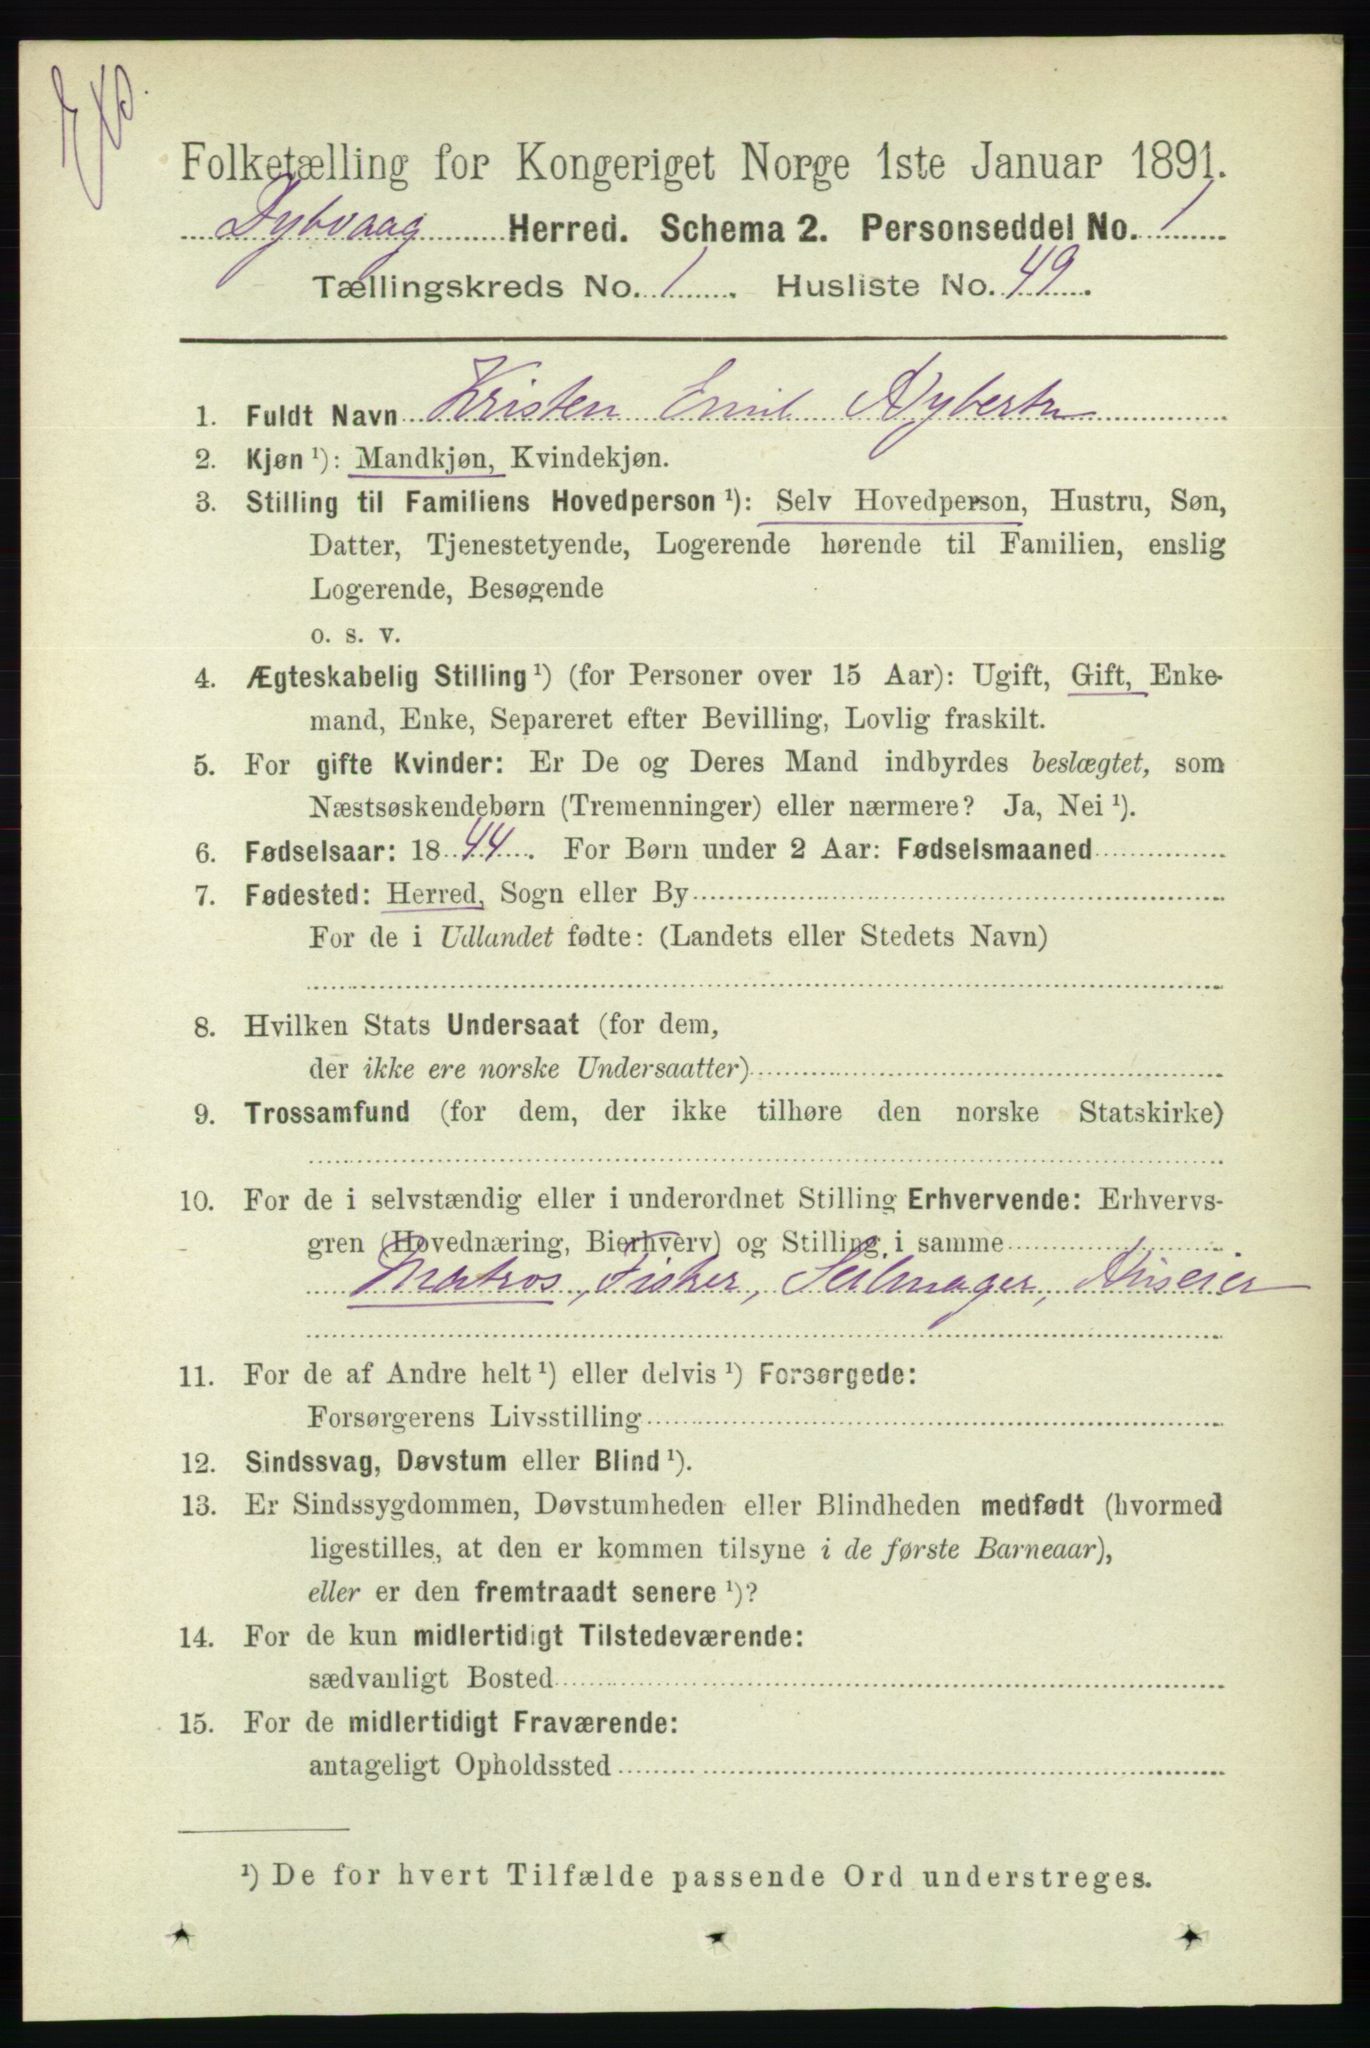 Folketælling for Kongeriget Norge 1ste Januar 1891.
Dybvaag Herred. Schema 2. Personseddel No. 1
Tællingskreds No. 1. Husliste No. 49.
1. Fuldt Navn Kristen Emil
2. Kjøn ¹): Mandkjøn, Kvindekjøn.
3. Stilling til Familiens Hovedperson ¹): Selv Hovedperson, Hustru, Søn,
Datter, Tjenestetyende, Logerende hørende til Familien, enslig
Logerende, Besøgende
o. s. v.
4. Ægteskabelig Stilling ¹) (for Personer over 15 Aar): Ugift, Gift, Enke-
mand, Enke, Separeret efter Bevilling, Lovlig fraskilt.
5. For gifte Kvinder: Er De og Deres Mand indbyrdes beslægtet, som
Næstsøskendebørn (Tremenninger) eller nærmere? Ja, Nei ¹).
6. Fødselsaar: 1844. For Børn under 2 Aar: Fødselsmaaned
7. Fødested: Herred, Sogn eller By
For de i Udlandet fødte: (Landets eller Stedets Navn)
8. Hvilken Stats Undersaat (for dem,
der ikke ere norske Undersaatter)
9. Trossamfund (for dem, der ikke tilhøre den norske Statskirke)
10. For de i selvstændig eller i underordnet Stilling Erhvervende: Erhvervs-
gren (Hovednæring, Bierhverv) og Stilling i samme
Matros, Fisker, Seilmager, Huseier
11. For de af Andre helt ¹) eller delvis ¹) Forsørgede:
Forsørgerens Livsstilling
12. Sindssvag, Døvstum eller Blind ¹).
13. Er Sindssygdommen, Døvstumheden eller Blindheden medfødt (hvormed
ligestilles, at den er kommen tilsyne i de første Barneaar),
eller er den fremtraadt senere ¹)?
14. For de kun midlertidigt Tilstedeværende:
sædvanligt Bosted
15. For de midlertidigt Fraværende:
antageligt Opholdssted
¹) De for hvert Tilfælde passende Ord understreges.